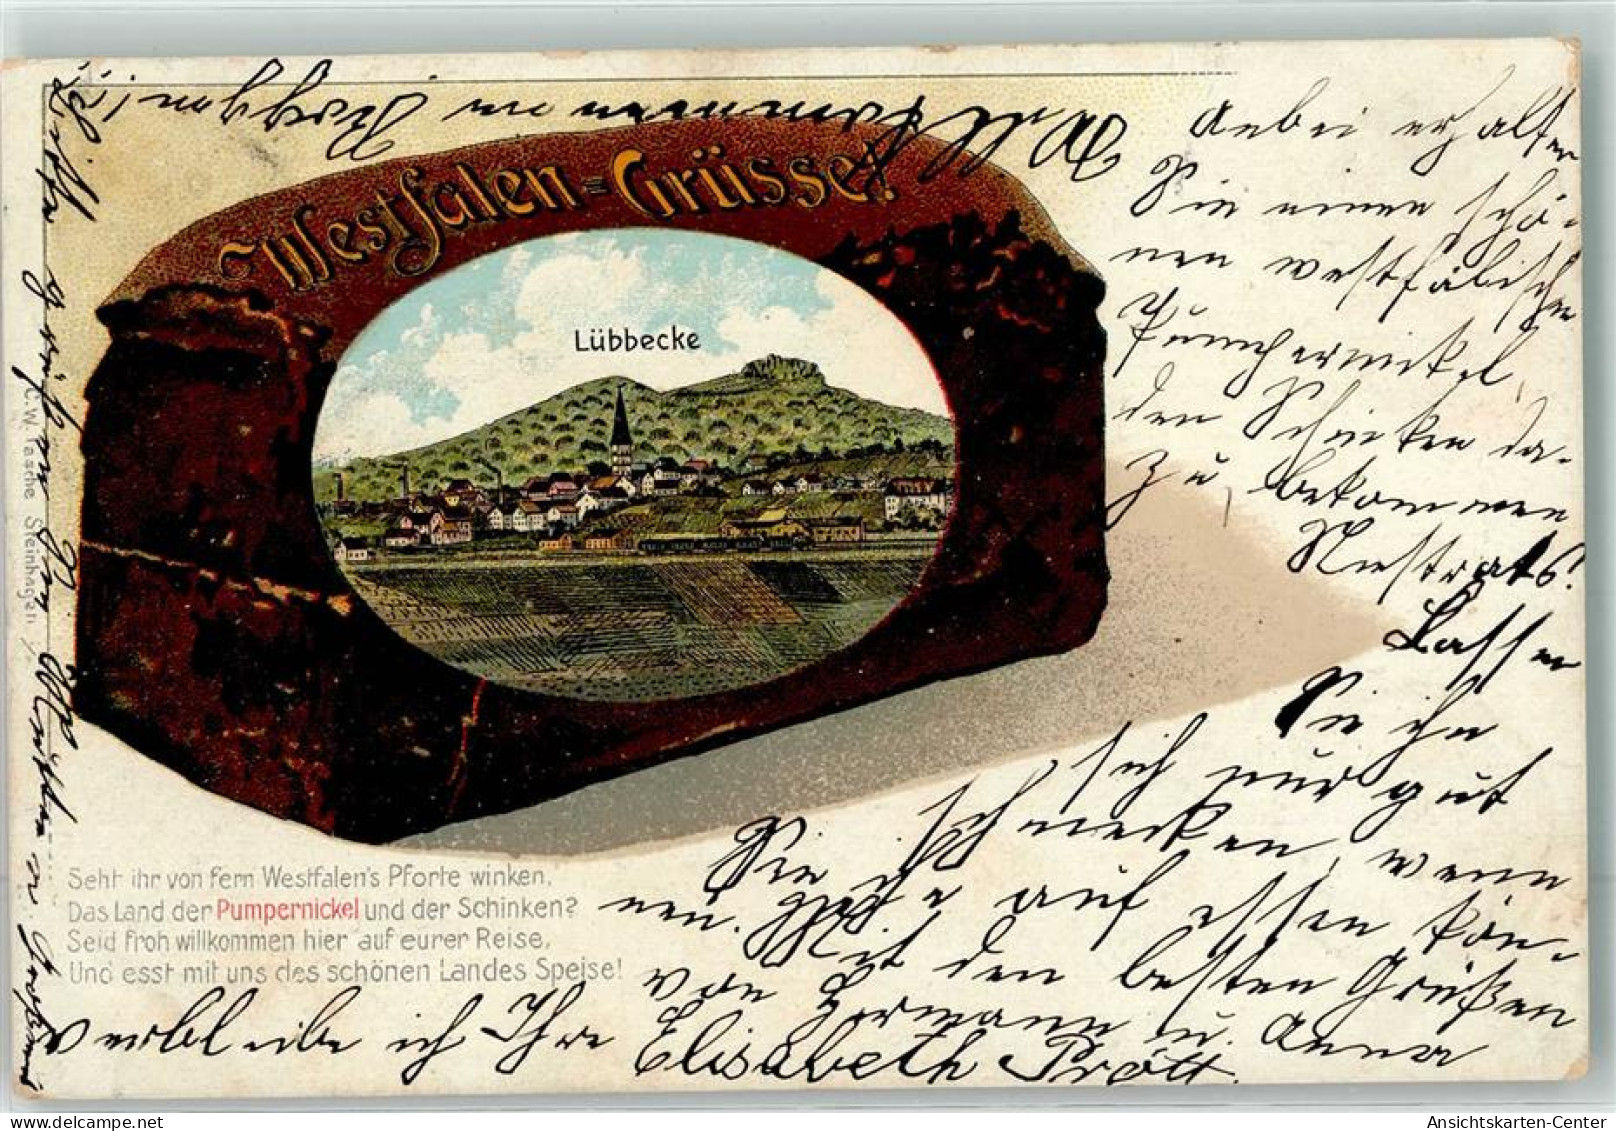 Westfalen-Grüsse!
Lübbecke
C.W. Taschè Steinhagen
Seht ihr von fern Westfalen's Pforte winken,
Das Land der Pumpernickel und der Schinken?
Seid froh willkommen hier auf eurer Reise,
Und esst mit uns des schönen Landes Speise!
Anbei erhalten
Sie einen schö-
nen westfälischen
Pumpernickel,
den Schinken da-
zu, bekommen
Lassen
Sie ihn
sich nur gut
schmecken, wenn
Sie ihn auf essen kön-
nen. Mit den besten Grüßen
von Hermann u. Anna
verbleibe ich Ihre Elisabeth Prött.
Bitte grüßen Sie
Ansichtskarten-Center
www.delcampe.net